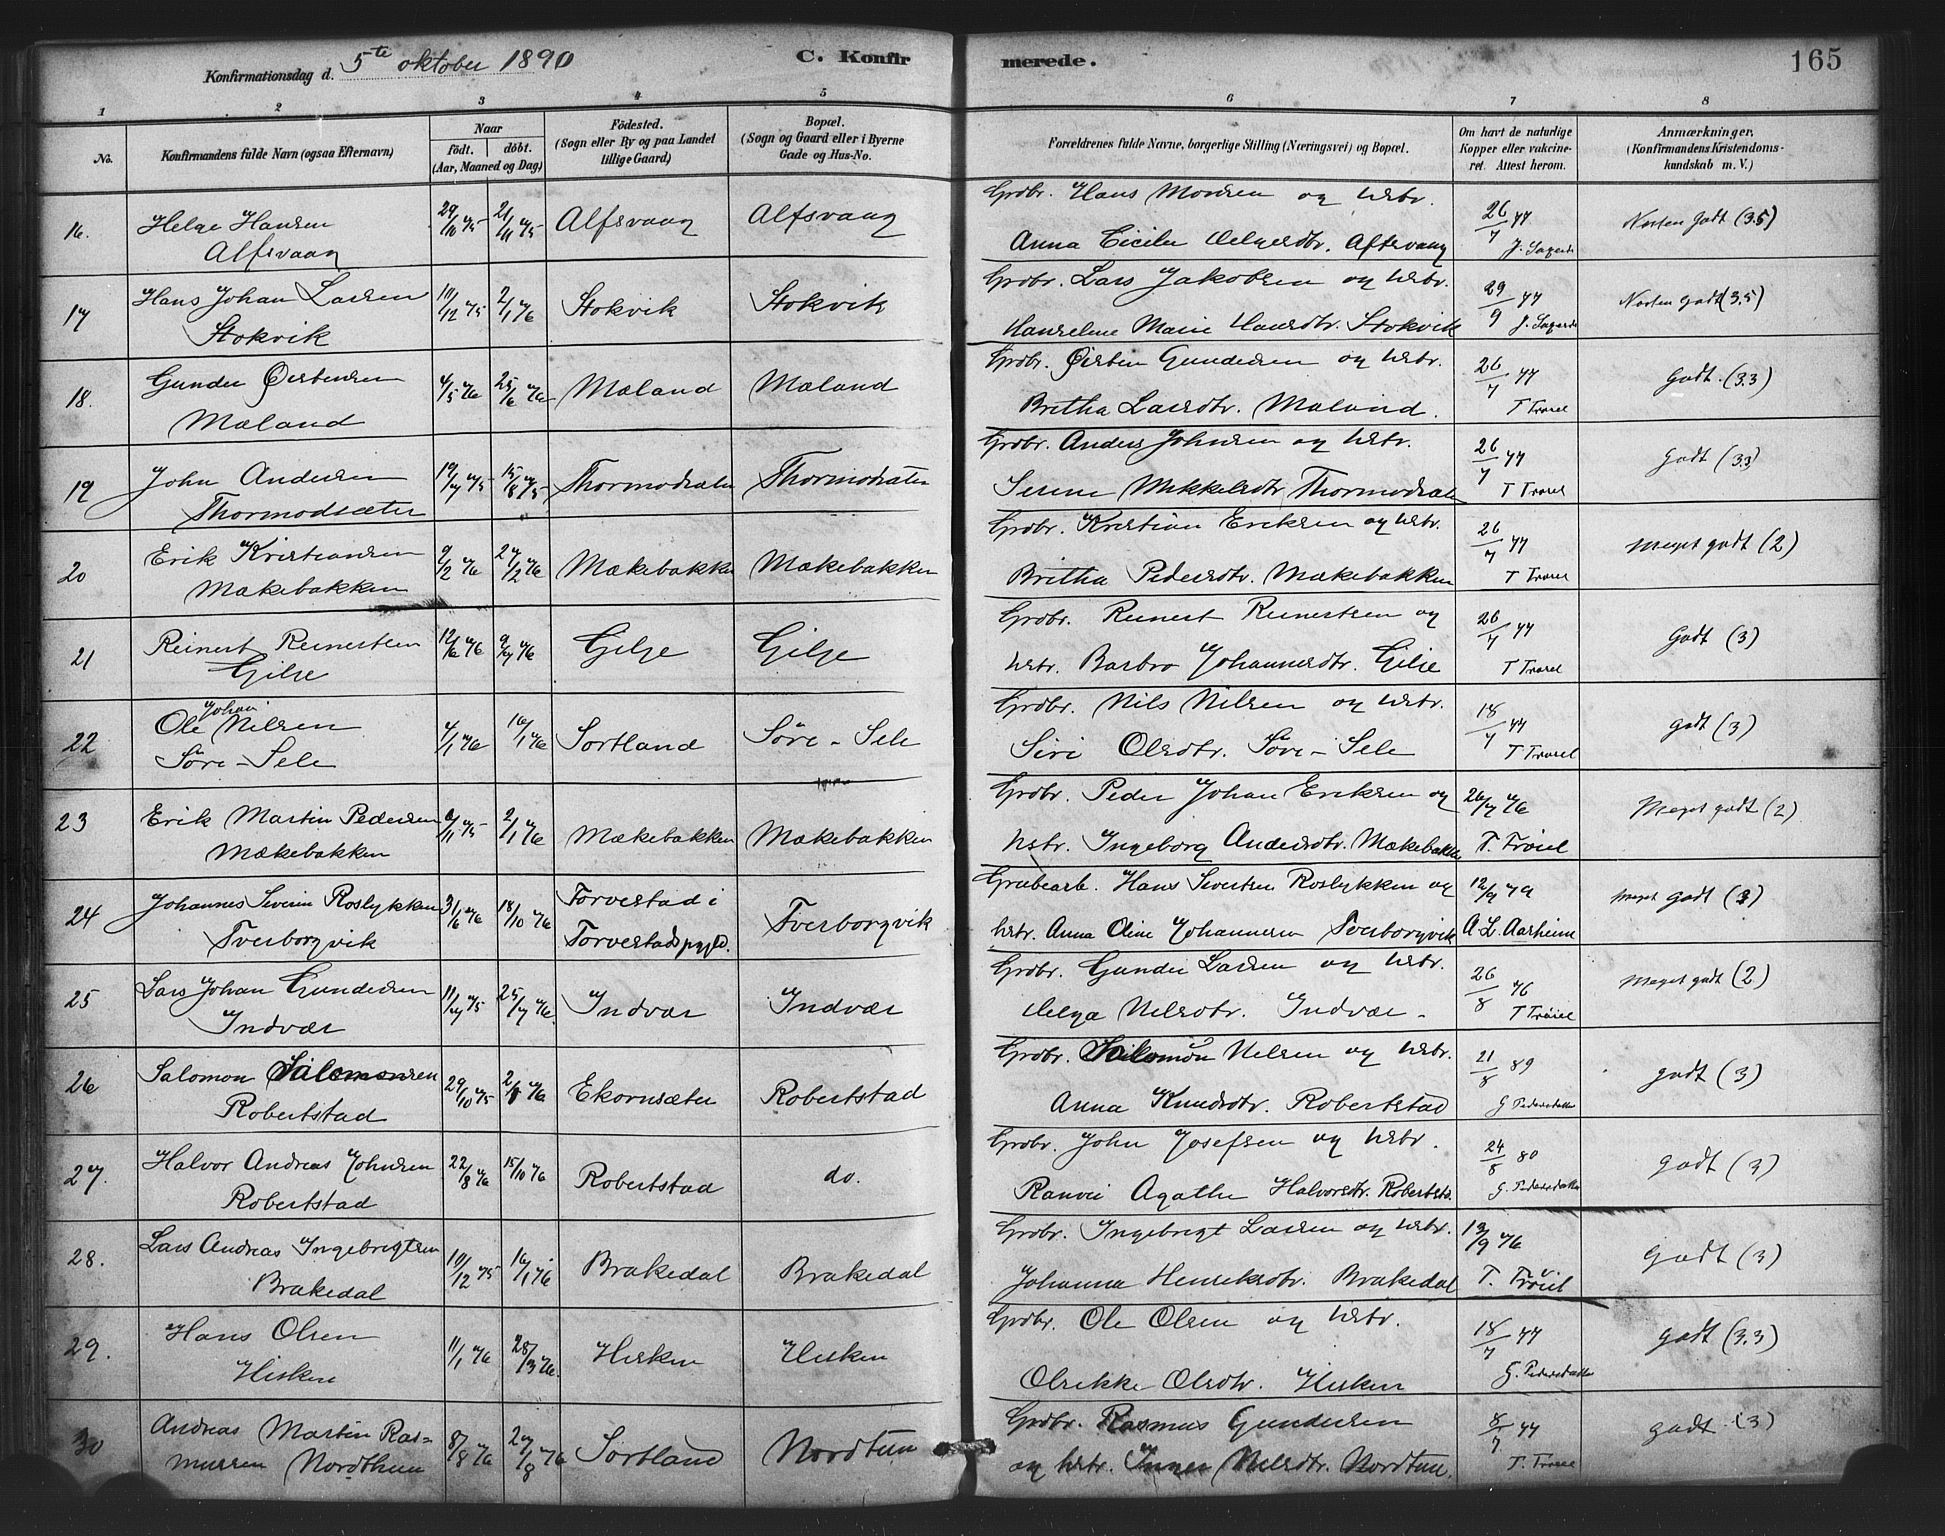 Konfirmationsdag d. 5te oktober 1890
C. Konfirmerede.
165
1 2 3 4 5 6 7 8
No.
Konfirmandens fulde Navn (ogsaa Efternavn)
Naar
födt. döbt.
(Aar, Maaned og Dag)
Födested.
(Sogn eller By og paa Landet
tillige Gaard)
Bopæl.
(Sogn og Gaard eller i Byerne
Gade og Hus-No.
Forældrenes fulde Navne, borgerlige Stilling (Næringsvei) og Bopæl.
Om havt de naturlige
Kopper eller vakcine-
ret. Attest herom.
Anmærkninger,
(Konfirmandens Kristendoms-
kundskab m. V.)
16. Helge Hansen
Alfsvaag
29/10 75 21/11 75 Alfsvaag Alfsvaag
Grdbr. Hans Monsen og Hstr.
Anna Cicilie Helgesdtr. Alfsvaag
26/7 77
Næsten godt (3.5)
17 Hans Johan Larsen
Stokvik
10/12 75 2/1 76 Stokvik Stokvik
Grdbr. Lars Jakobsen og Hstr.
Hanseline Marie Hansdtr. Stokvik
29/9 77
Næsten godt (3.5)
18. Gunder Östensen
Mæland
4/5 76 25/6 76 Mæland Mæland
Grdbr. Östen Gundersen og Hstr.
Britha Larsdtr. Mæland.
26/7 77
T Troiel
Godt. (3.3)
19 John Andersen
Thormodsæter
19/7 75 15/8 75 Thormodsæter Thormodsæter
Grdbr. Anders Johnsen og Hstr.
Serine Mikkelsdtr Thormodsæter
26/7 77
T Troiel
Godt (3.3)
20 Erik Kristiansen
Mækebakken
9/2 76 27/2 76 Mækebakken Mækebakken
Grdbr. Kristian Eriksen og Hstr.
Britha Pedersdtr. Mækebakken
26/7 77
T Troiel
Meget godt (2)
21 Reinert Reinertsen
Gilje
12/6 76 9/7 76 Gilje Gilje
Grdbr. Reinert Reinertsen og
Hstr. Barbro Johannesdtr. Gilje
26/7 77
T Troiel
Godt (3)
22 Ole Johan Nilsen
Söre-Sele
4/1 76 16/1 76 Sortland Söre-Sele
Grdbr. Nils Nilsen og Hstr.
Siri Olsdtr. Söre-Sele
18/7 77
T Troiel
godt (3)
23 Erik Martin Pedersen
Mækebakken
2/1 76 Mækebakken Mækebakken
Grdbr. Peder Johan Eriksen og
Hstr. Ingeborg Andersdtr. Mækebakken
26/7 76
T. Tröiel
Meget godt (2)
24 Johannes Severin Roslykken
Tverborgvik
3/6 76 18/10 76 Torvestad i
Torvestads pgjld. Tverborgvik
Grubearb. Hans Sivertsen Roslykken og
Hstr. Anna Oline Johannesen Tverborgvik
12/9 79
A. L. Aarheim
meget godt
25 Lars Johan Gundersen
Indvær
11/7 75 25/7 76. Indvær Indvær
Grdbr. Gunder Larsen og Hstr.
Helga Nilsdtr. Indvær.
26/8 76
T Tröiel
Meget godt (2)
26 Salomon Salomonsen
Robertstad
29/10 75 Ekornsæter Robertstad
Grdbr. Salomon Nilsen og Hstr.
Anna Knudsdtr. Robertstad
21/8 89
godt (3)
27. Halvor Andreas Johnsen
Robertstad
22/8 76 15/10 76 Robertstad do.
Grdbr. John Josefsen og Hstr.
Ranvei Agathe Halvorsdtr. Robertstd.
24/8 80
godt (3)
28. Lars Andreas Ingebrigtsen
Brækedal
10/12 75 16/1 76 Brækedal Brækedal
Grdbr. Ingebrigt Larsen og Hstr.
Johanna Henriksdtr. Brækedal
13/9 76
T. Tröiel
Godt (3)
29. Hans Olsen
Hisken
11/1 76 28/3 76. Hisken Hisken
Grdbr. Ole Olsen og Hstr.
Olrikke Olsdtr. Hisken
18/7 77
godt (3,3)
30 Andreas Martin Ras-
mussen Nordthun
8/8 76 27/8 76 Sortland Nordtun
Grdbr. Rasmus Gundersen
og Hstr. Inger Nilsdtr. Nordtun.
8/7 77
T. Troiel
godt (3)